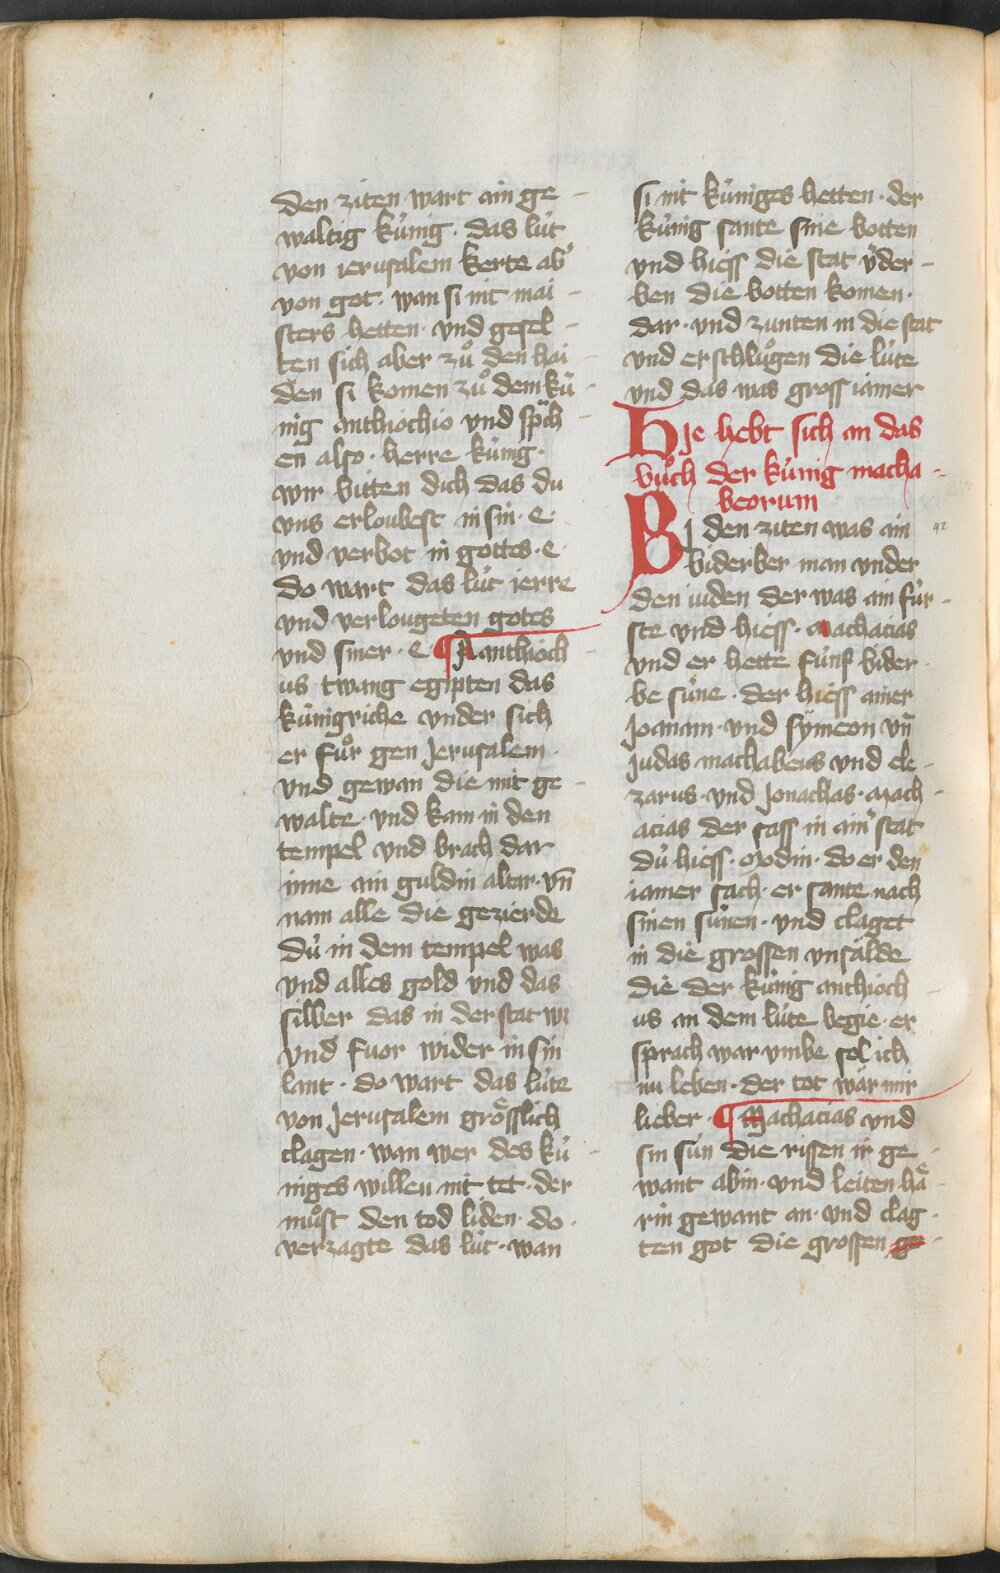 den ziten wart ain ge
waltig kúnig · das lút
von ierusalem kerte ab
von got · wan si nit mai
sters hetten · und gesel
ten sich aber zuͦ den hai
den si komen zuͦ dem kú
nig anthiochio und spͣch
en also · herre kúnig ·
wir bitten dich das du
vns erloubest in sin · e ·
vnd verbot in gottes · e ·
do wart das lút ierre
vnd verlougeten gotes
vnd siner · e · ¶ Anthioch
us twang egipten das
kúnigriche vnder sich
er fuͦr gen Jerusalem ·
vnd gewan die mit ge
walte · vnd kam in den
tempel vnd brach dar
inne ain guldin altar · vn̄
nam alle die gezierde
dú in dem tempel was
vnd alles gold vnd das
silber das in der stat wz
vnd fuor wider in sin
lant · do wart das lúte
von Jerusalem groͤsslich
clagen · wan wer des kú
niges willen nit tet · der
muͦst den tod liden · do ·
verzagte das lút · wan
si nit kúniges hetten · der
kúnig sante sine botten
vnd hiess die stat v̓der
ben die botten komen ·
dar · vnd zunten in die stat
vnd erschluͦgen die lúte
vnd das was gross iamer
Hie hebt sich an das
buͦch der kúnig macha
beorum
BI den ziten was ain
biderber man vnder
den iuden der was ain fúr
ste vnd hiess · Mathatias
vnd er hette fúnf bider
be súne · der hiess ainer
Joanam · vnd symeon vn̄
Judas machabeus vnd ele
zarus · vnd Jonathas · Math
atias der sass in ain̓ stat
dú hiess · Modin · do er den
iamer sach · er sante nach
sinen súnen · vnd claget
in die grossen vnsälde
die der kúnig anthioch
us an dem lúte begie · er
sprach war vmbe sol ich
nu leben · der tot wär mir
lieber · ¶ Mathatias vnd
sin sún die rissen ir ge
want abin · vnd leiten häͤ
rin gewant an · vnd clag
ten got die grossen ge